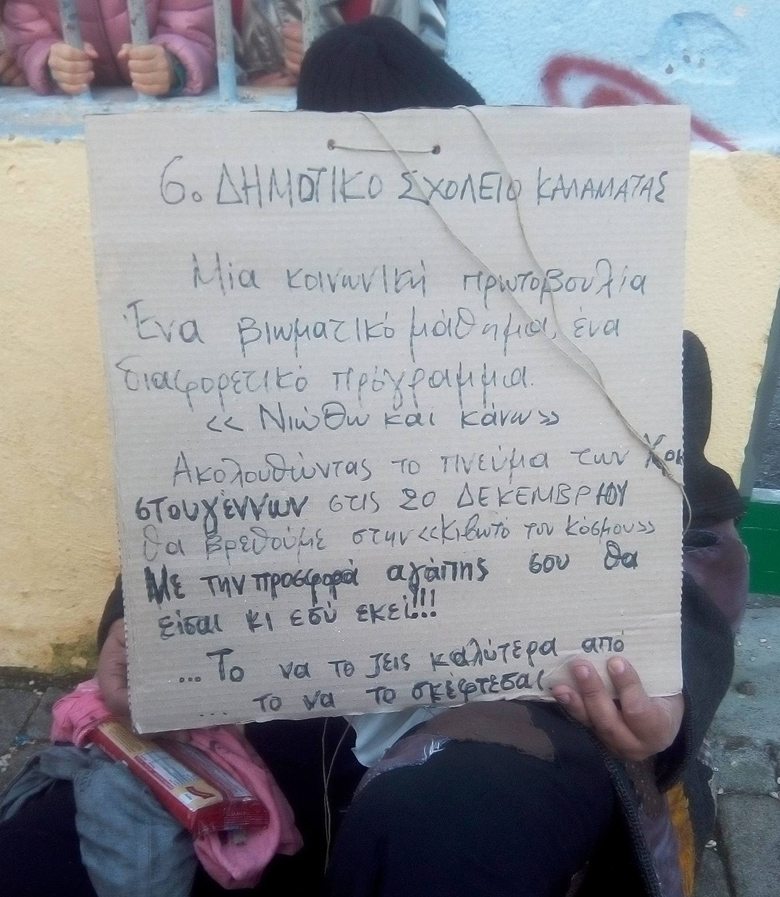 6ο ΔΗΜΟΤΙΚΟ ΣΧΟΛΕΙΟ ΚΑΛΑΜΑΤΑΣ
Μια κοινωνική πρωτοβουλία
Ένα βιωματικό μάθημα, ένα
διαφορετικό πρόγραμμα.
<< Νιώθω και κάνω >>
Ακολουθώντας το πνεύμα των Χρι
στουγέννων στις 20 ΔΕΚΕΜΒΡΙΟΥ
θα βρεθούμε στην <<Κιβωτό του Κόσμου>>
Με την προσφορά αγάπης σου θα
είσαι κι εσύ εκεί!!!
...Το να το ζεις καλύτερα από
... το να το σκέφτεσαι.